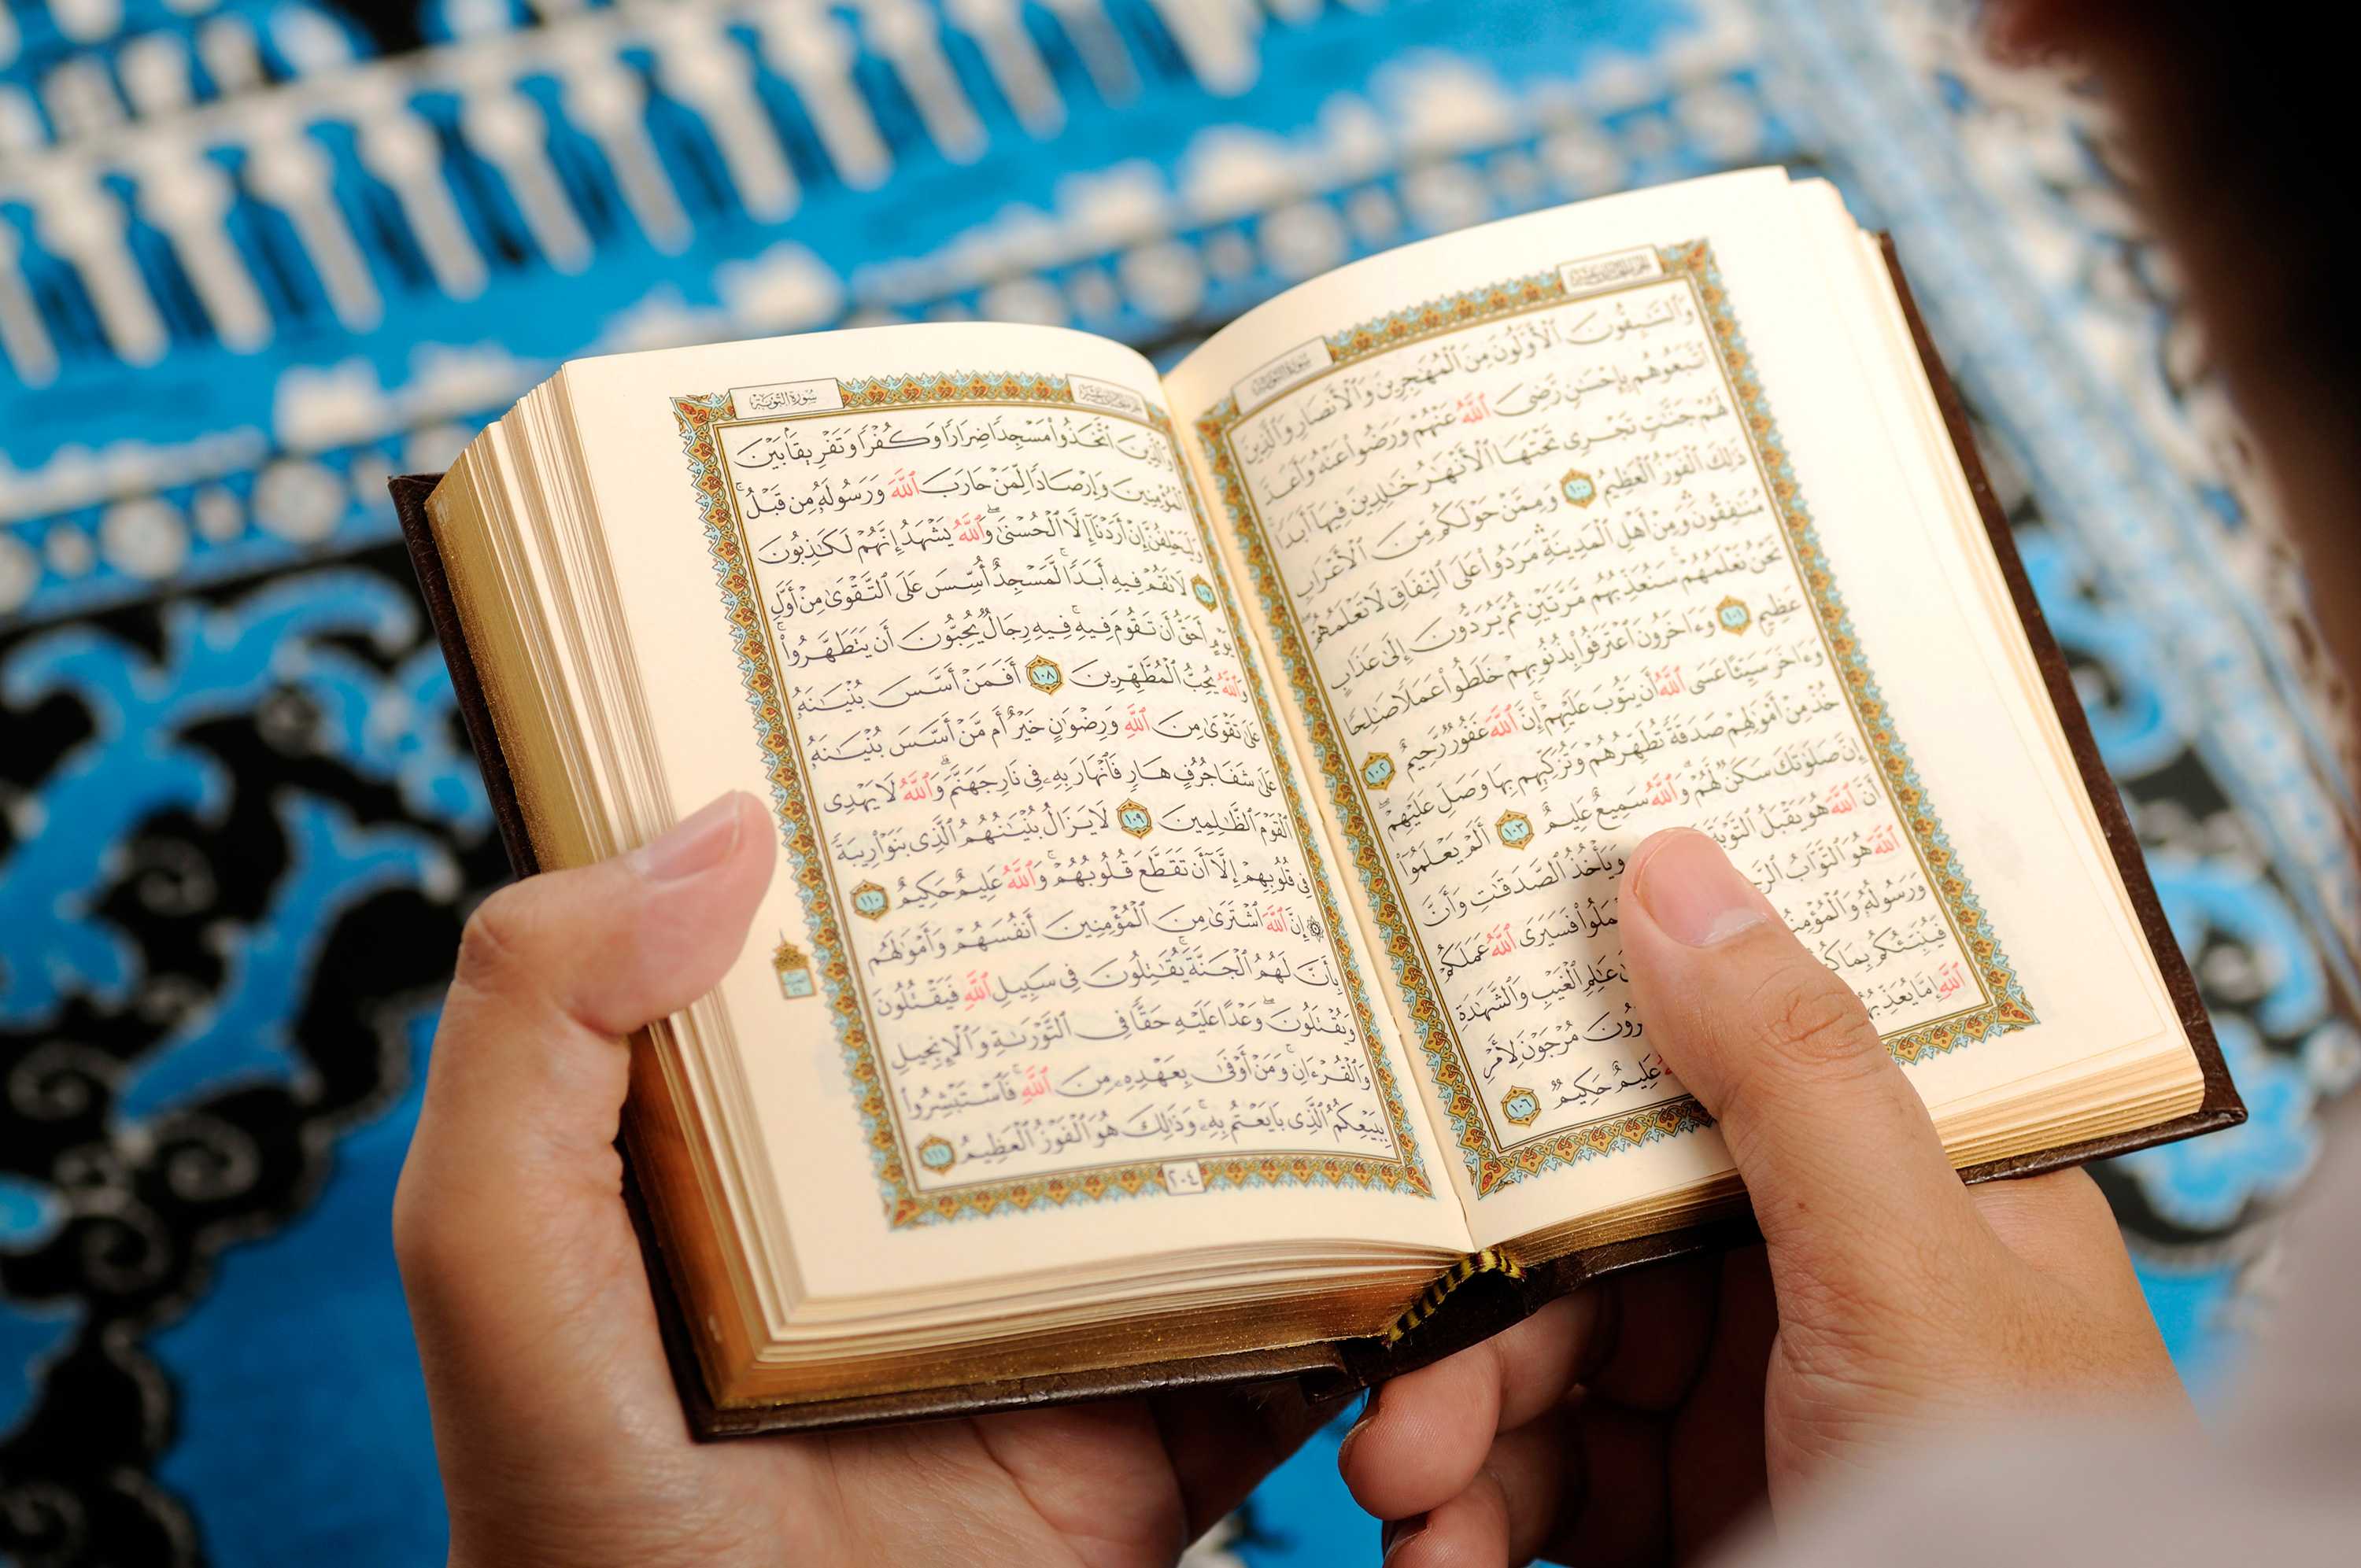 الجزء الحادي عشر سورة التوبة
وَٱلسَّـٰبِقُونَ ٱلْأَوَّلُونَ مِنَ ٱلْمُهَـٰجِرِينَ وَٱلْأَنصَارِ وَٱلَّذِينَ
ٱتَّبَعُوهُم بِإِحْسَـٰنٍ رَّضِىَ ٱللَّهُ عَنْهُمْ وَرَضُوا۟ عَنْهُ وَأَعَدَّ
لَهُمْ جَنَّـٰتٍ تَجْرِى تَحْتَهَا ٱلْأَنْهَـٰرُ خَـٰلِدِينَ فِيهَآ أَبَدًا ۚ
ذَٰلِكَ ٱلْفَوْزُ ٱلْعَظِيمُ ١٠٠ وَمِمَّنْ حَوْلَكُم مِّنَ ٱلْأَعْرَابِ
مُنَـٰفِقُونَ ۖ وَمِنْ أَهْلِ ٱلْمَدِينَةِ ۖ مَرَدُوا۟ عَلَى ٱلنِّفَاقِ لَا تَعْلَمُهُمْ ۖ
نَحْنُ نَعْلَمُهُمْ ۚ سَنُعَذِّبُهُم مَّرَّتَيْنِ ثُمَّ يُرَدُّونَ إِلَىٰ عَذَابٍ
عَظِيمٍ ١٠١ وَءَاخَرُونَ ٱعْتَرَفُوا۟ بِذُنُوبِهِمْ خَلَطُوا۟ عَمَلًا صَـٰلِحًا
وَءَاخَرَ سَيِّئًا عَسَى ٱللَّهُ أَن يَتُوبَ عَلَيْهِمْ ۚ إِنَّ ٱللَّهَ غَفُورٌ رَّحِيمٌ ١٠٢
خُذْ مِنْ أَمْوَٰلِهِمْ صَدَقَةً تُطَهِّرُهُمْ وَتُزَكِّيهِم بِهَا وَصَلِّ عَلَيْهِمْ ۖ
إِنَّ صَلَوٰتَكَ سَكَنٌ لَّهُمْ ۗ وَٱللَّهُ سَمِيعٌ عَلِيمٌ ١٠٣ أَلَمْ يَعْلَمُوٓا۟
أَنَّ ٱللَّهَ هُوَ يَقْبَلُ ٱلتَّوْبَةَ وَيَأْخُذُ ٱلصَّدَقَـٰتِ وَأَنَّ
ٱللَّهَ هُوَ ٱلتَّوَّابُ فَسَيَرَى ٱللَّهُ عَمَلَكُمْ
وَرَسُولُهُۥ عَـٰلِمِ ٱلْغَيْبِ وَٱلشَّهَـٰدَةِ
فَيُنَبِّئُكُم بِمَا مُرْجَوْنَ لِأَمْرِ
ٱللَّهِ إِمَّا عَلِيمٌ حَكِيمٌ ١٠٦
الجزء الحادي عشر سورة التوبة
وَٱلَّذِينَ ٱتَّخَذُوا۟ مَسْجِدًا ضِرَارًا وَكُفْرًا وَتَفْرِيقًۢا بَيْنَ
ٱلْمُؤْمِنِينَ وَإِرْصَادًا لِّمَنْ حَارَبَ ٱللَّهَ وَرَسُولَهُۥ مِن قَبْلُ ۚ
وَلَيَحْلِفُنَّ إِنْ أَرَدْنَآ إِلَّا ٱلْحُسْنَىٰ ۖ وَٱللَّهُ يَشْهَدُ إِنَّهُمْ لَكَـٰذِبُونَ
١٠٧ لَا تَقُمْ فِيهِ أَبَدًا ۚ لَّمَسْجِدٌ أُسِّسَ عَلَى ٱلتَّقْوَىٰ مِنْ أَوَّلِ
يَوْمٍ أَحَقُّ أَن تَقُومَ فِيهِ ۚ فِيهِ رِجَالٌ يُحِبُّونَ أَن يَتَطَهَّرُوا۟ ۚ
وَٱللَّهُ يُحِبُّ ٱلْمُطَّهِّرِينَ ١٠٨ أَفَمَنْ أَسَّسَ بُنْيَـٰنَهُۥ
عَلَىٰ تَقْوَىٰ مِنَ ٱللَّهِ وَرِضْوَٰنٍ خَيْرٌ أَم مَّنْ أَسَّسَ بُنْيَـٰنَهُۥ
عَلَىٰ شَفَا جُرُفٍ هَارٍ فَٱنْهَارَ بِهِۦ فِى نَارِ جَهَنَّمَ ۗ وَٱللَّهُ لَا يَهْدِى
ٱلْقَوْمَ ٱلظَّـٰلِمِينَ ١٠٩ لَا يَزَالُ بُنْيَـٰنُهُمُ ٱلَّذِى بَنَوْا۟ رِيبَةً
فِى قُلُوبِهِمْ إِلَّآ أَن تَقَطَّعَ قُلُوبُهُمْ ۗ وَٱللَّهُ عَلِيمٌ حَكِيمٌ ١١٠
۞ إِنَّ ٱللَّهَ ٱشْتَرَىٰ مِنَ ٱلْمُؤْمِنِينَ أَنفُسَهُمْ وَأَمْوَٰلَهُم
بِأَنَّ لَهُمُ ٱلْجَنَّةَ ۚ يُقَـٰتِلُونَ فِى سَبِيلِ ٱللَّهِ فَيَقْتُلُونَ
وَيُقْتَلُونَ ۖ وَعْدًا عَلَيْهِ حَقًّا فِى ٱلتَّوْرَىٰةِ وَٱلْإِنجِيلِ
وَٱلْقُرْءَانِ ۚ وَمَنْ أَوْفَىٰ بِعَهْدِهِۦ مِنَ ٱللَّهِ ۚ فَٱسْتَبْشِرُوا۟
بِبَيْعِكُمُ ٱلَّذِى بَايَعْتُم بِهِۦ ۚ وَذَٰلِكَ هُوَ ٱلْفَوْزُ ٱلْعَظِيمُ ١١١
٢٠٤